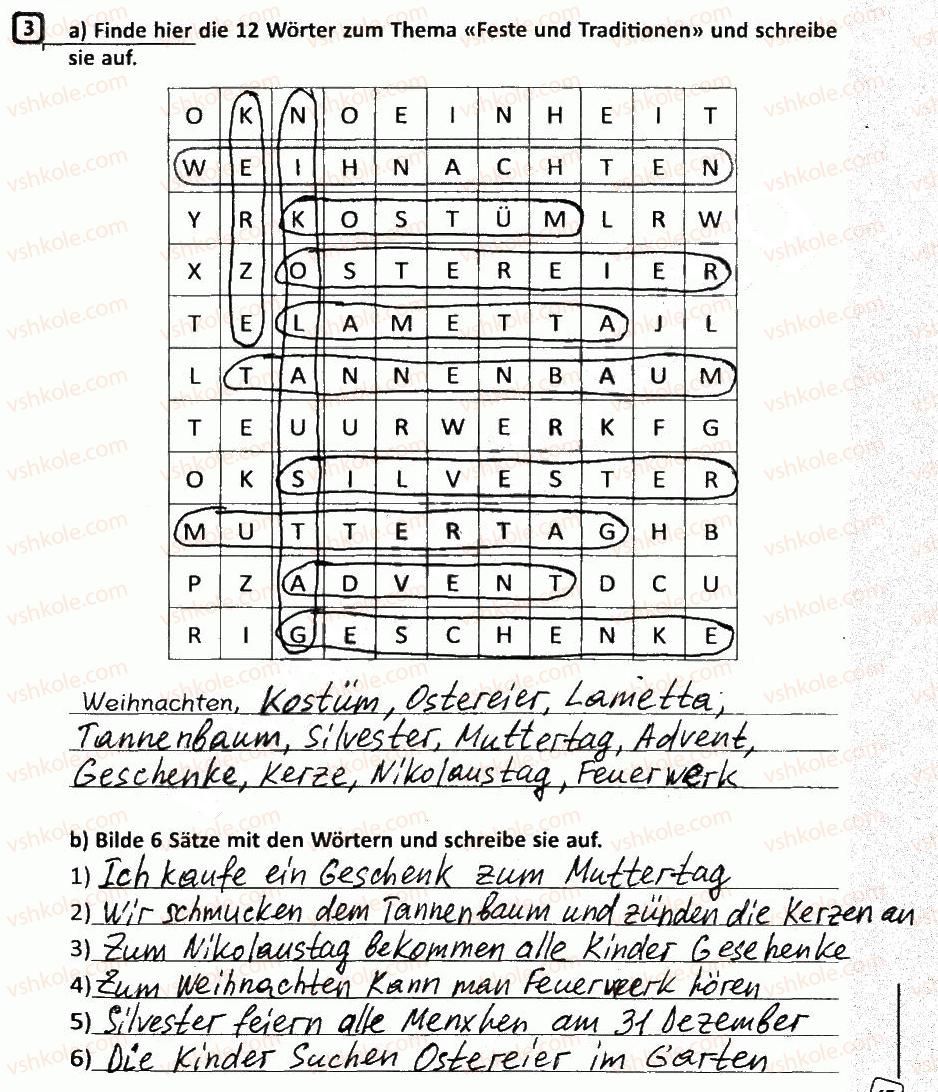 3 a) Finde hier die 12 Wörter zum Thema «Feste und Traditionen» und schreibe
sie auf.
O K N O E I N H E I T
W E I H N A C H T E N
Y R K O S T Ü M L R W
X Z O S T E R E I E R
T E L A M E T T A J L
L T A N N E N B A U M
T E U U R W E R K F G
O K S I L V E S T E R
M U T T E R T A G H B
P Z A D V E N T D C U
R I G E S C H E N K E
Weihnachten, Kostüm, Ostereier, Lametta,
Tannenbaum, Silvester, Muttertag, Advent,
Geschenke, Kerze, Nikolaustag, Feuerwerk
b) Bilde 6 Sätze mit den Wörtern und schreibe sie auf.
1) Ich kaufe ein Geschenk zum Muttertag
2) Wir schmucken dem Tannenbaum und zünden die Kerzen an
3) Zum Nikolaustag bekommen alle Kinder Geschenke
4) Zum Weihnachten kann man Feuerwerk hören
5) Silvester feiern alle Menxhen am 31 Dezember
6) Die Kinder Suchen Ostereier im Garten
vshkole.com